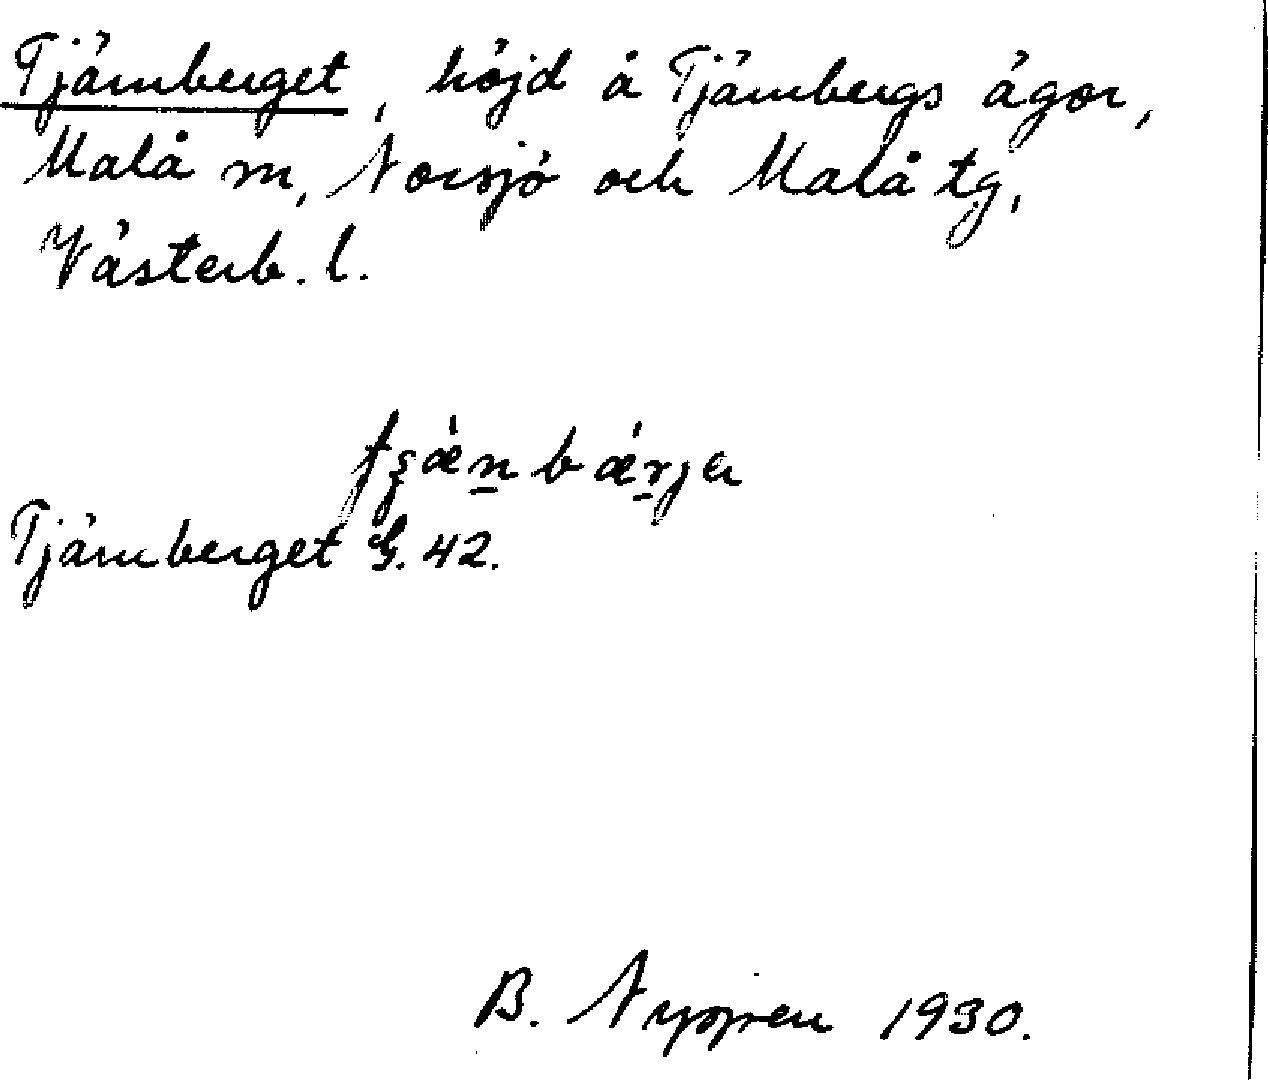 Tjärnberget, höjd å Tjärnbergs ägor,
Malå sn, Norsjö och Malå tg,
Västerb. l.
Tjärnberget G. 42.
B. 1930.